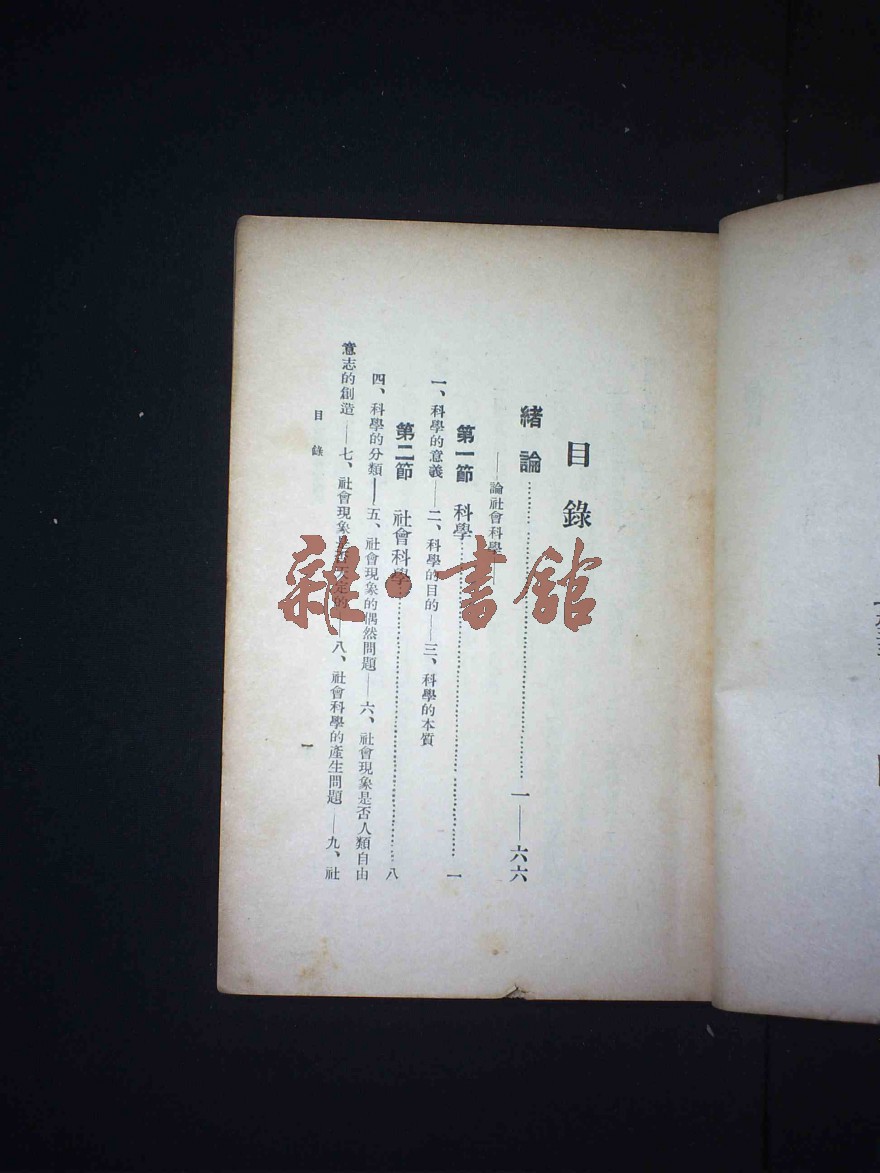 目錄
緒論…………………………一——六六
——論社會科學——
第一節 科學…………………………一
一、科學的意義——二、科學的目的——三、科學的本質
第二節 社會科學…………………………八
四、科學的分類——五、社會現象的偶然問題——六、社會現象是否人類自由
意志的創造——七、社會現象 定的——八、社會科學的產生問題——九、社
目錄
一
雜·書館